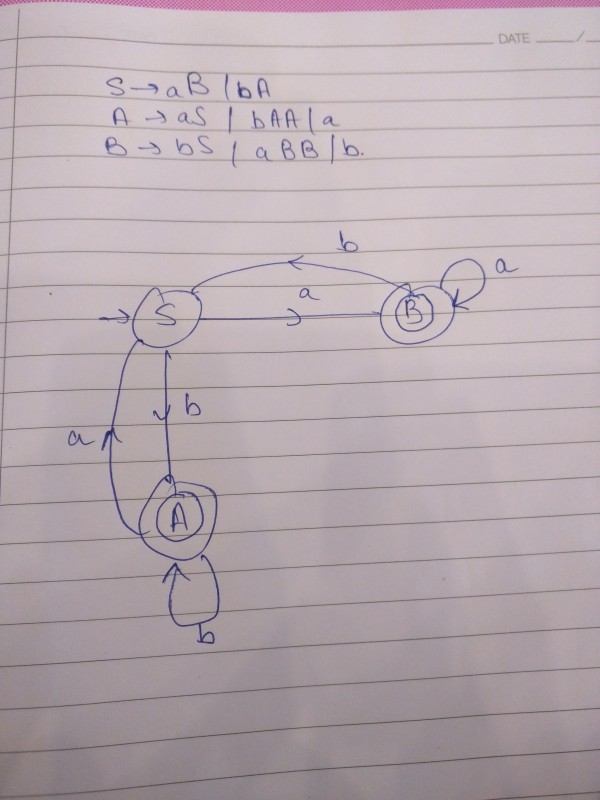 DATE ___/
S → aB | bA
A → aS | bAA | a
B → bS | aBB | b.
b
a
a
S
B
b
a
A
b